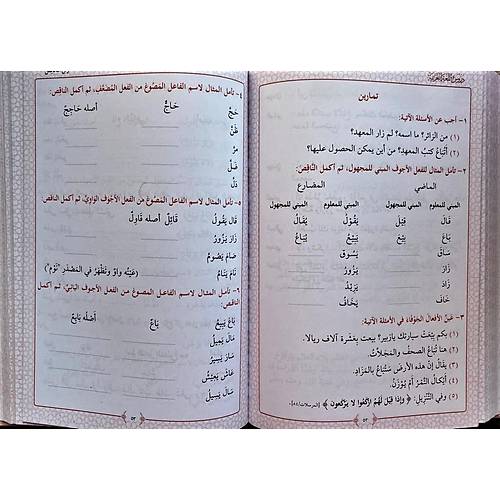 دروس اللغة العربية
تمارين
١- أجب عن الأسئلة الآتية:
(١) من الزائر؟ ما اسمه؟ لم زار المعهد؟
(٢) أتُبَاعُ كتبُ المعهد؟ من أين يمكن الحصول عليها؟
٢- تأمل المثال للفعل الأجوف المبني للمجهول، ثم أكمل النَّاقِصَ:
الماضي المضارع
المبني للمعلوم المبني للمجهول المبني للمعلوم المبني للمجهول
قَالَ قِيْلَ يَقُوْلُ يُقَالُ
بَاعَ بِيْعَ يَبِيْعُ يُبَاعُ
سَاقَ يَسُوْقُ
زَارَ يَزُوْرُ
زَادَ يَزِيْدُ
خَافَ يَخَافُ
٣- عَيِّنْ الأفعال الجَوْفَاءَ في الأمثلة الآتية:
(١) بكم بِيْعَتْ سيارتك يازبير؟ بيعت بعَشْرة آلاف ريال.
(٢) هنا تُبَاعُ الصحفُ والمَجَلاَّتُ.
(٣) يقالُ إنَّ هذه الأرضَ سَتُبَاعُ بالمَزَادِ.
(٤) أَيُكَالُ التَّمْرُ أَمْ يُوْزَنُ.
(٥) وفي التَّنْزِيلِ: ﴿ وَإِذَا قِيْلَ لَهُمُ ارْكَعُوا لا يَرْكَعون ﴾ [المرسلات/٤٨].
٥٢
٤- تأمل المثال لاسم الفاعل المَصُوْغ من الفعل المُضَعَّف، ثم أكمل الناقِصَ:
حَجَّ حَاجٌّ أصله حَاجِجٌ
ظَنَّ
مَرَّ
ضَلَّ
دَلَّ
٥- تأمل المثال لاسم الفاعل المَصُوْغ من الفعل الأَجْوَف الوَاوِيِّ، ثم أكمل الناقص:
قَالَ يَقُوْلُ قَائِلٌ أصله قَاوِلٌ
زَارَ يَزُوْرُ
صَامَ يَصُوْمُ
نَامَ يَنَامُ (عَيْنُه واوٌ وتَظْهَرُ في المَصْدَرِ "نَوْم")
٦- تأمل المثال لاسم الفاعل المَصُوْغ من الفعل الأجوف اليائيِّ، ثم أكمل
الناقص:
بَاعَ يَبِيْعُ بَائِعٌ أَصْلُه بَايِعٌ
مَالَ يَمِيْلُ
سَارَ يَسِيْرُ
عَاشَ يَعِيْشُ
سَالَ يَسِيْلُ
٥٣